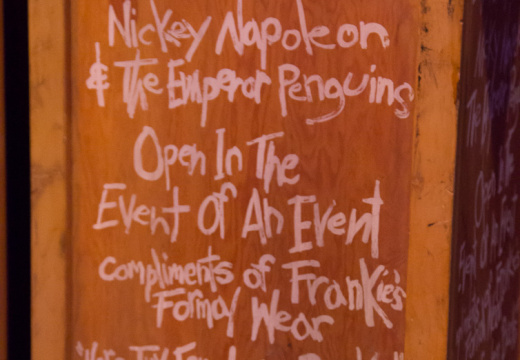 Nickey Napoleon
& The Emperor Penguins
Open In The
Event Of An Event
compliments of Frankie's
Formal Wear